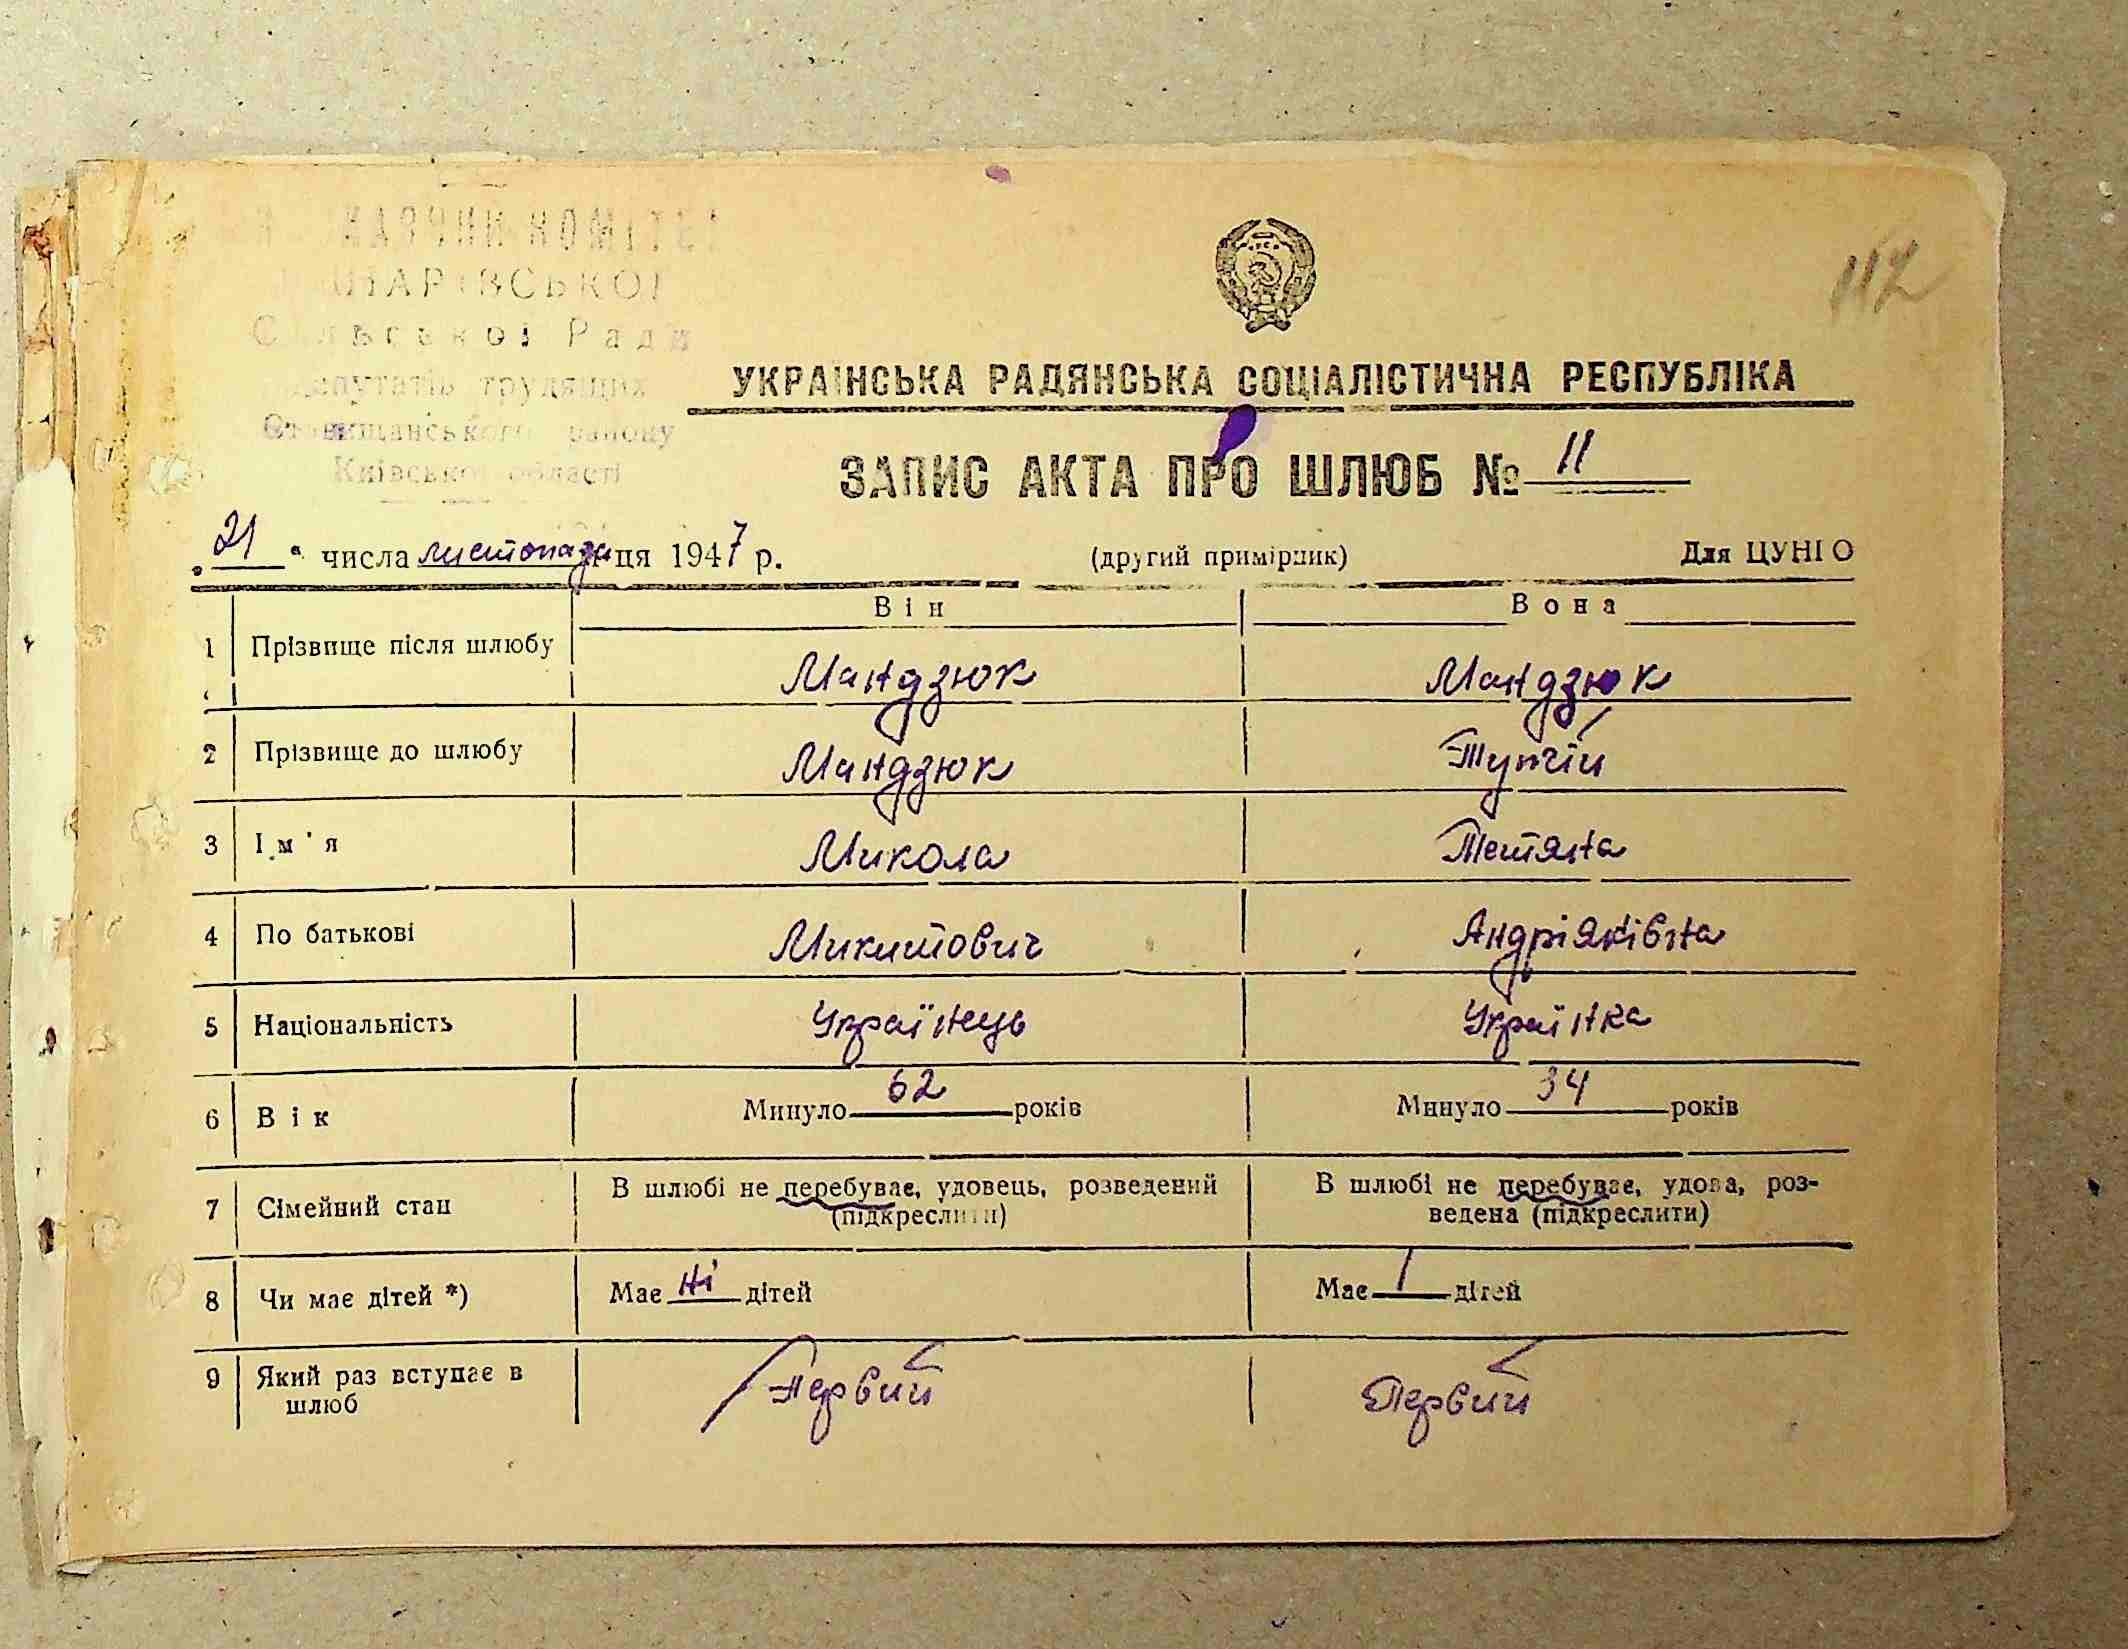 КОМІТЕТ
Сільської Ради
депутатів трудящих
Ставищанського району
Київської області
112
УКРАЇНСЬКА РАДЯНСЬКА СОЦІАЛІСТИЧНА РЕСПУБЛІКА
ЗАПИС АКТА ПРО ШЛЮБ № 11
„21“ числа листопада ця 1947 р. (другий примірник) Для ЦУНГО
Він Вона
1 Прізвище після шлюбу Мандзюк Мандзюк
2 Прізвище до шлюбу Мандзюк Тупчій
3 Ім'я Микола Тетяна
4 По батькові Микитович Андріяківна
5 Національність Українець Українка
6 Вік Минуло 62 років Минуло 34 років
7 Сімейний стан В шлюбі не перебуває, удовець, розведений В шлюбі не перебуває, удова, роз-
(підкреслити) ведена (підкреслити)
8 Чи має дітей *) Має ні дітей Має 1 дітей
9 Який раз вступає в Первий Первий
шлюб